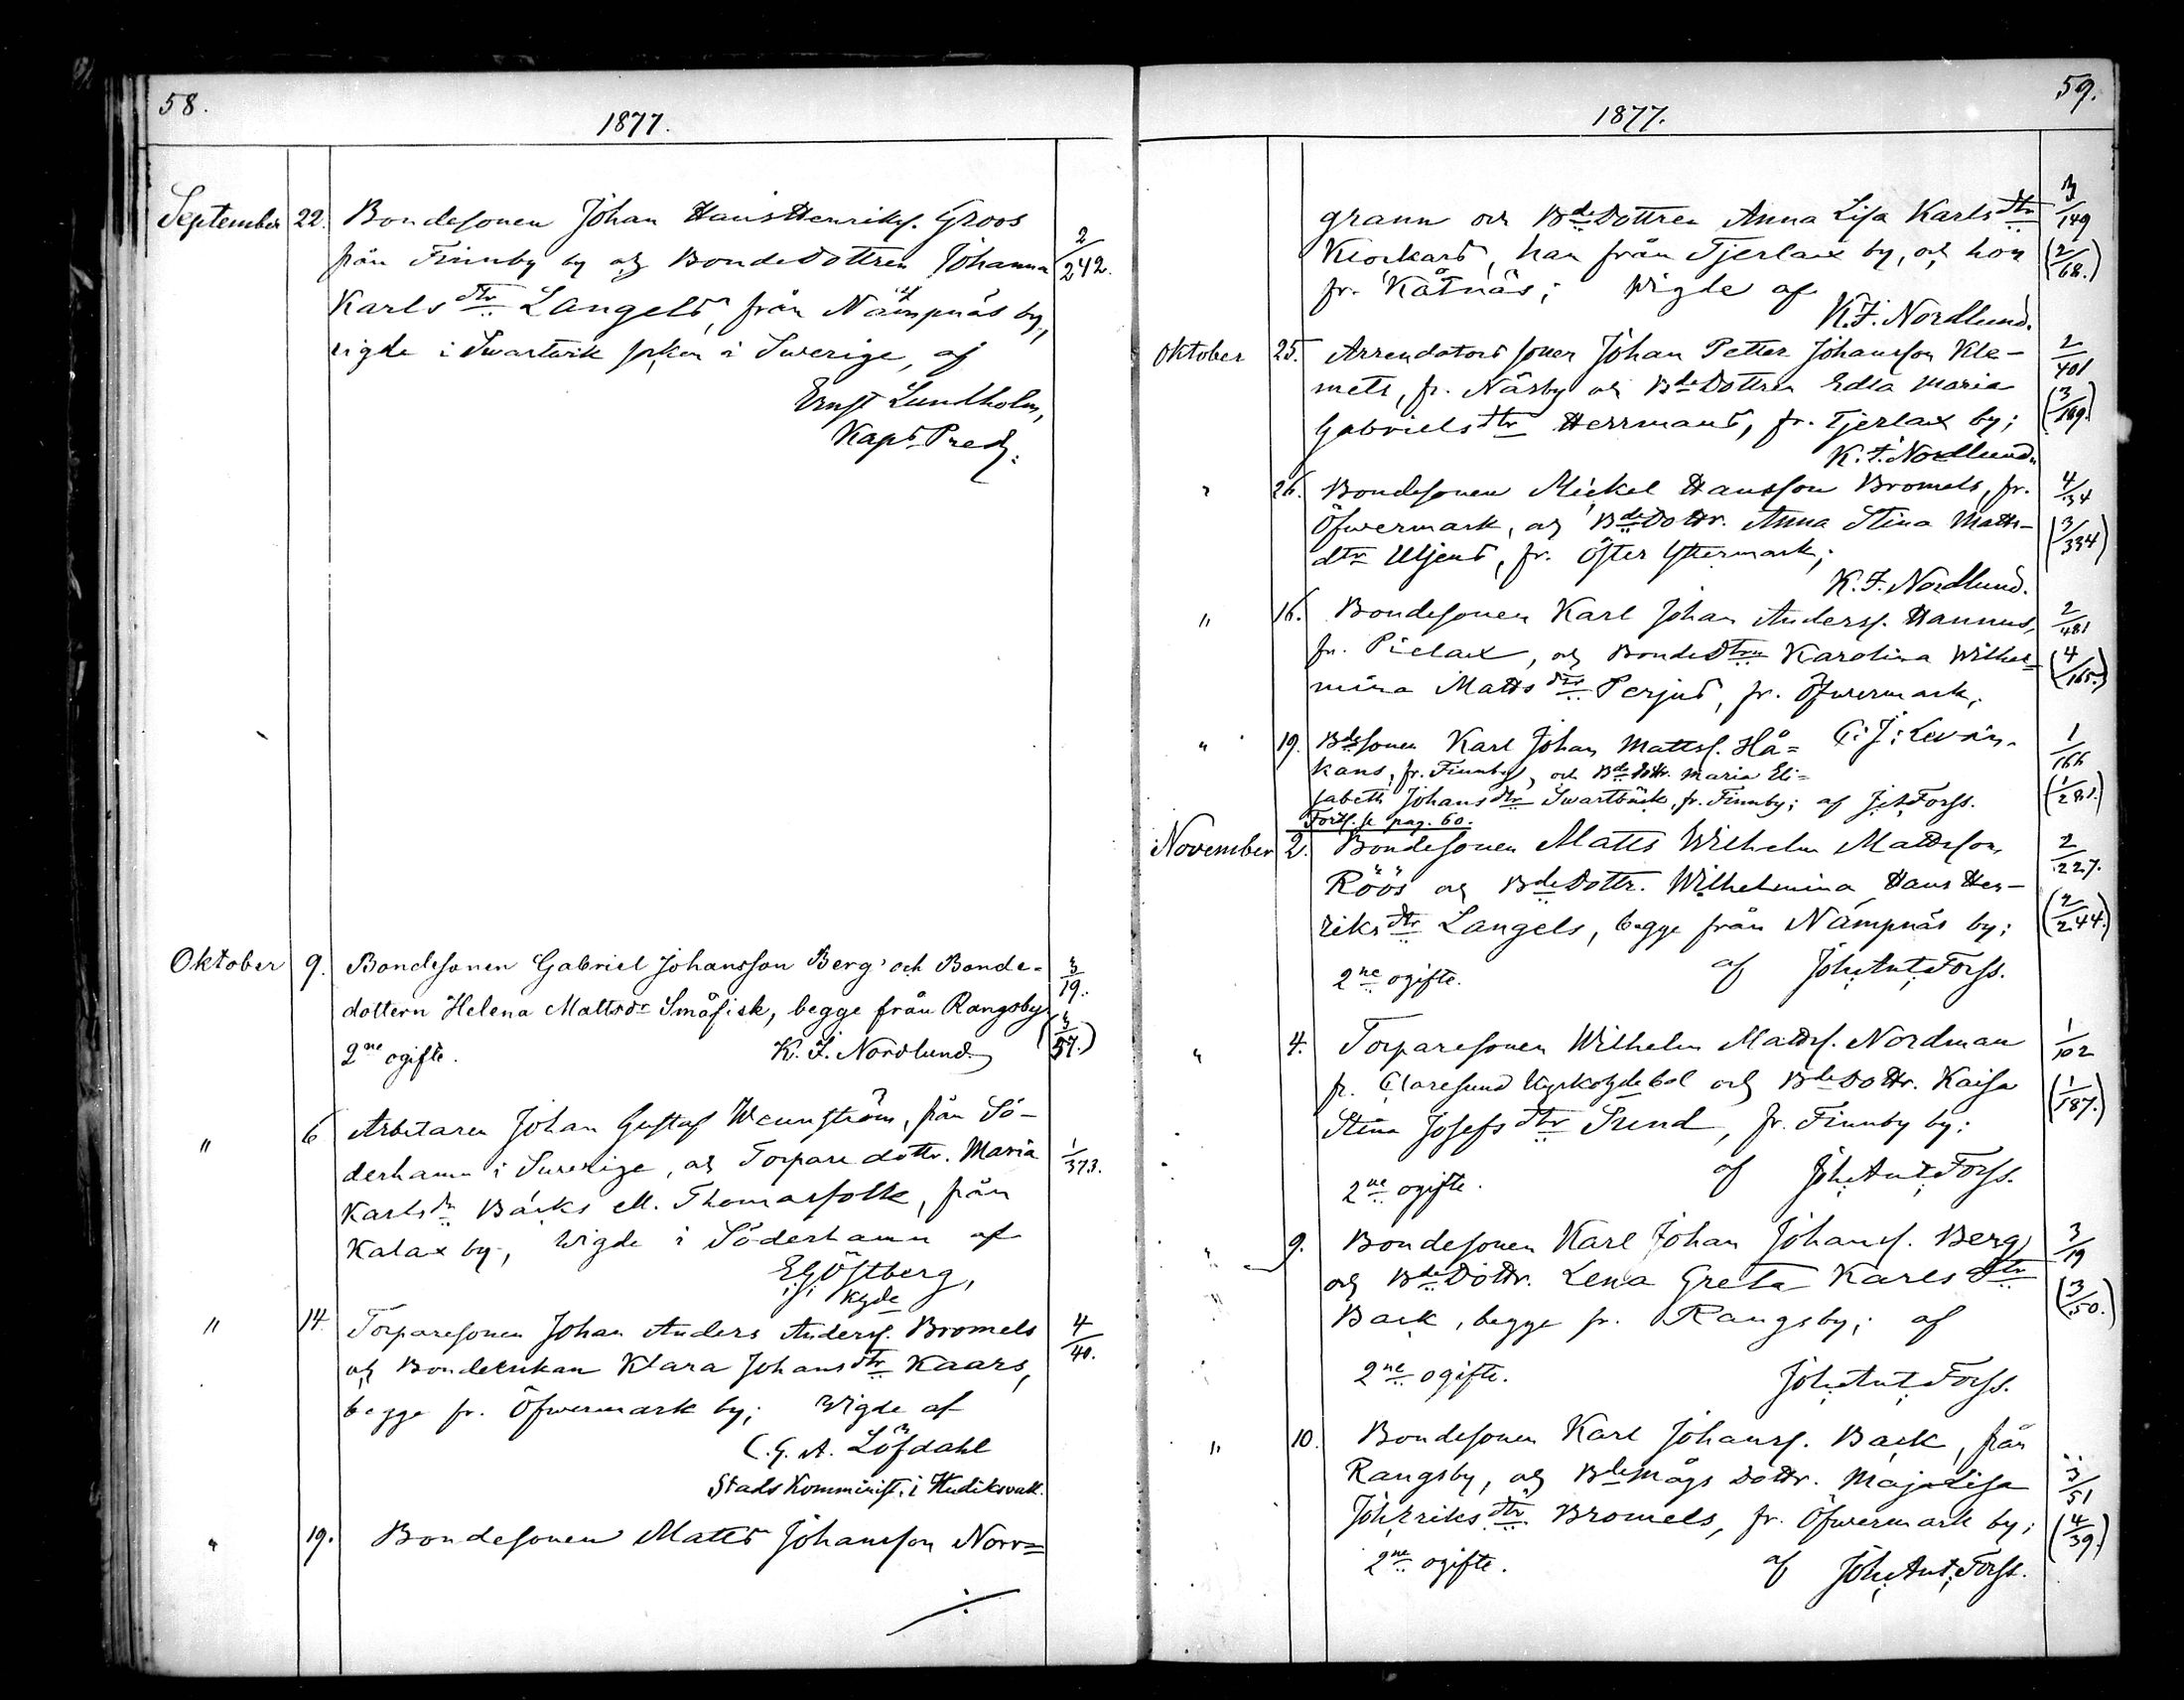 58.
1877.
September 22. Bondesonen Johan Hans Henrikss. Groos
från Finnby by och Bondedottren Johanna 2/242.
Karls dtr Langels, från Nämpnäs by,
vigde i Swartwik socken i Swerige, af
Ernst Lundholm,
Kaps Pred.
Oktober 9. Bondesonen Gabriel Johansson Berg och Bonde- 3/19.
dottern Helena Mattsdr Småfisk, begge från Rangsby (3/57.)
2ne ogifte. K. F. Nordlund
" 6 Arbetaren Johan Gustaf Wennström, från Sö-
derhamn i Swerige, och Torpare dottr. Maria 1/373.
Karlsdr Bäcks ell. Thomasfolk, från
Kalax by, Wigde i Söderhamn af
E. G. Östberg,
Kyde
" 14 Torparesonen Johan Anders Anderss. Bromels 4/40.
och Bondeenkan Klara Johansdtr Kaars,
begge fr. Öfwermark by; Wigde af
C. G. A. Löfdahl
Stads Komminist. i Hudiksvall.
" 19. Bondesonen Matts Johansson Norr=
59.
1877.
grann och Bde Dottren Anna Lisa Karlsdtr 3/149
Klockars, han från Tjerlax by, och hon (2/68.)
fr. Kåtnäs; Wigde af
K. F. Nordlund.
Oktober 25. Arrendators sonen Johan Petter Johansson Kle- 2/401
mets, fr. Näsby och Bde Dottren Edla Maria
Gabrielsdtr Herrmans, fr. Tjerlax by; (3/169.)
K. F. Nordlund.
" 26. Bondesonen Mickel Hansson Bromels, fr. 4/34
Öfwermark, och Bde Dottr. Anna Stina Matts- (3/334)
dtr Uljens, fr. Öster Yttermark;
K. F. Nordlund.
" 16. Bondesonen Karl Johan Anderss. Hannus, 2/481
fr. Pielax, och Bondedtrn Karolina Wilhel= (4/165.)
mina Mattsdtr Perjus, fr. Öfwermark.
C: J: Levón.
" 19. Bdesonen Karl Johan Mattss. Hå= 1/166
kans, fr. Finnby, och Bde Dottr. Maria Eli=
sabeth Johansdtr Swartbäck, fr. Finnby; af J. A. Forss. (1/281.)
Forts. se pag. 60.
November 2. Bondesonen Matts Wilhelm Mattsson 2/227.
Röös och Bde Dottr. Wilhelmina Hans Hen-
riksdtr Langels, begge från Nämpnäs by; (2/244.)
2ne ogifte. af Joh. Ant. Forss.
" 4. Torparesonen Wilhelm Mattss. Nordman 1/102
fr. bol och Bde Dottr. Kaisa
Stina Josefsdtr Sund, fr. Finnby by; (1/187.)
2ne ogifte. af Joh. Ant. Forss.
" 9. Bondesonen Karl Johan Johanss. Berg 3/19
och Bde Dottr. Lena Greta Karlsdtr
Back, begge fr. Rangsby; af (3/50.)
2ne ogifte. Joh. Ant. Forss.
" 10. Bondesonen Karl Johanss. Back, från
Rangsby, och Bde Mågs Dottr. Maja Lisa 3/51
Joh. Eriksdtr. Bromels, fr. Öfwermark by; (4/39.)
2ne ogifte. af Joh. Ant. Forss.